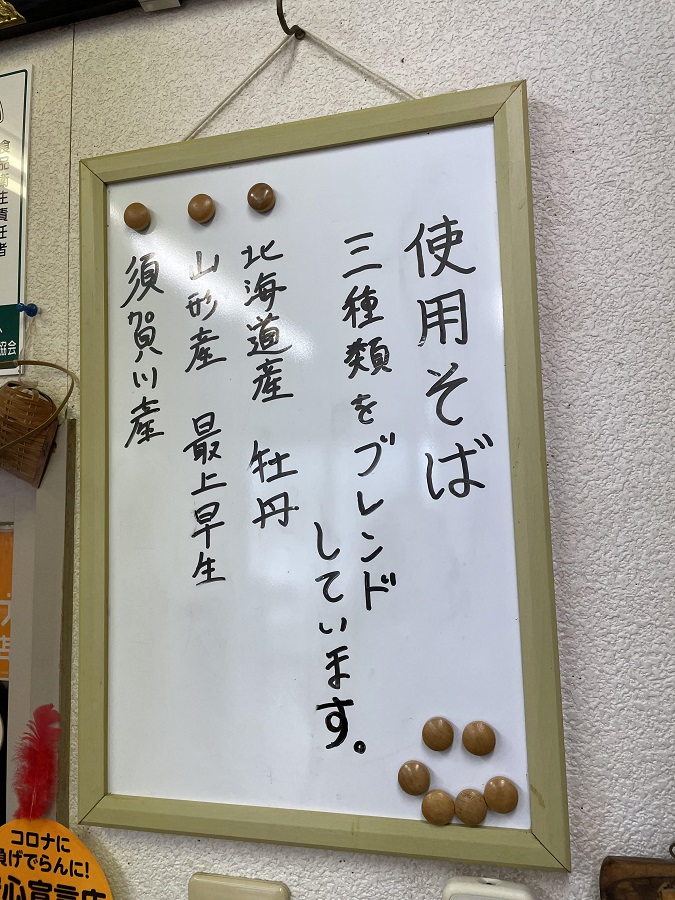 使用そば
三種類をブレンド
しています。
北海道産 牡丹
山形産 最上早生
須賀川産
食品衛生責任者
協会
コロナに
負げでらんに!
心宣言店